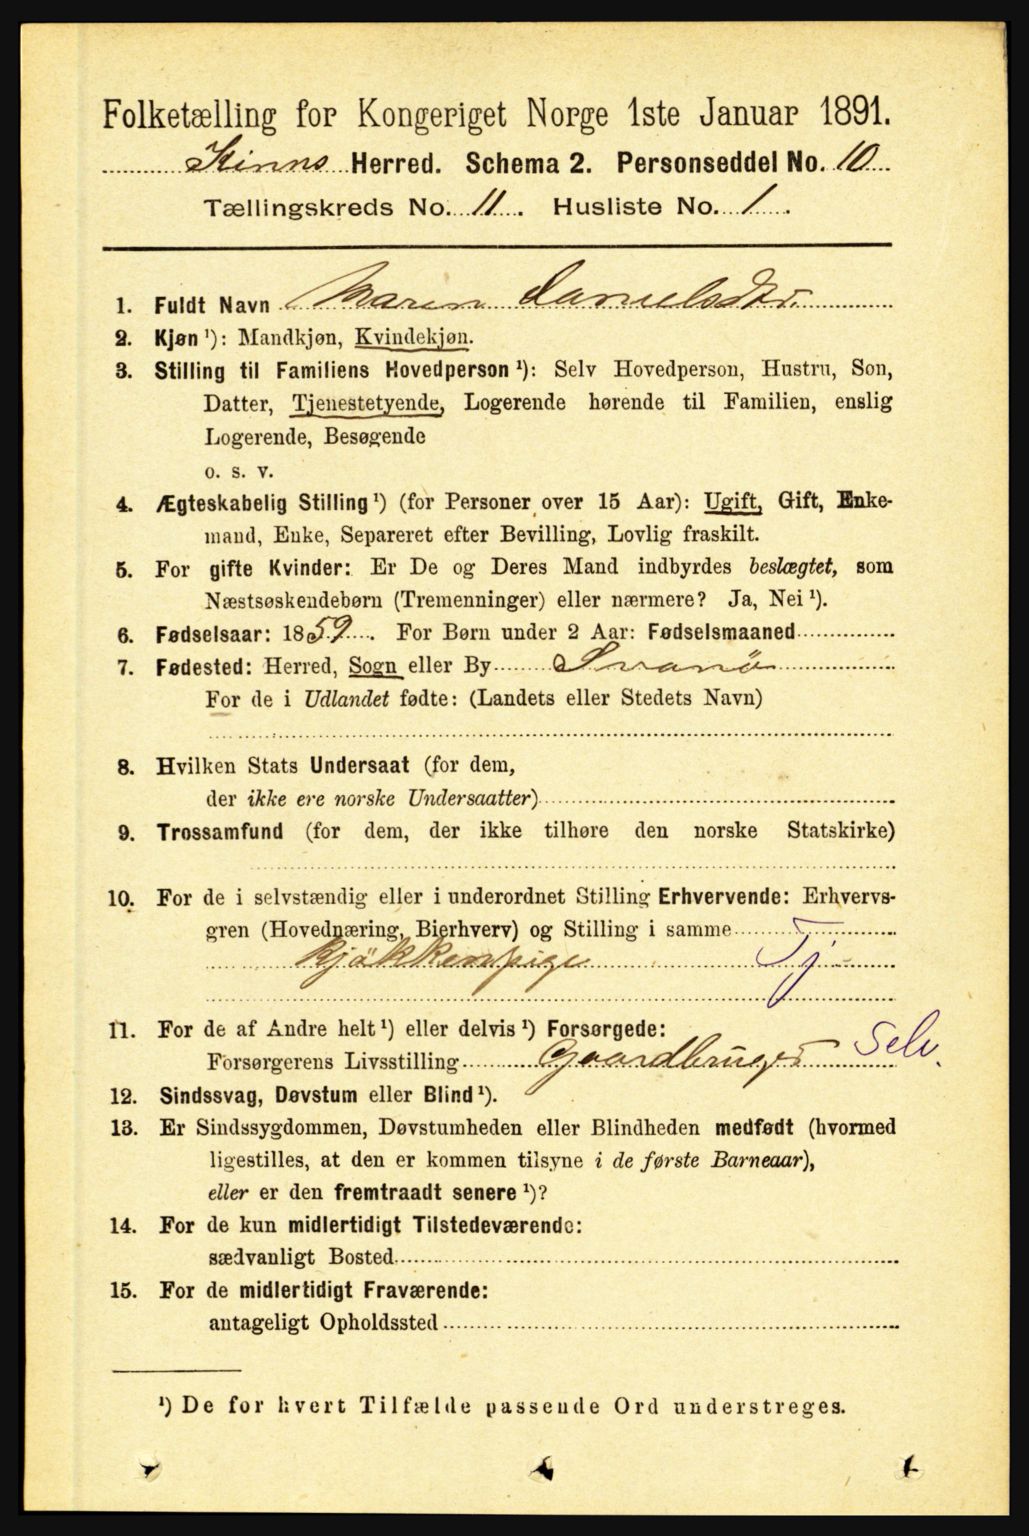 Folketælling for Kongeriget Norge 1ste Januar 1891.
Kinns Herred. Schema 2. Personseddel No. 10
Tællingskreds No. 11. Husliste No. 1.
1. Fuldt Navn Maren Samuelsdtr.
2. Kjøn ¹): Mandkjøn, Kvindekjøn.
3. Stilling til Familiens Hovedperson ¹): Selv Hovedperson, Hustru, Søn,
Datter, Tjenestetyende, Logerende hørende til Familien, enslig
Logerende, Besøgende
o. s. v.
4. Ægteskabelig Stilling ¹) (for Personer over 15 Aar): Ugift, Gift, Enke-
mand, Enke, Separeret efter Bevilling, Lovlig fraskilt.
5. For gifte Kvinder: Er De og Deres Mand indbyrdes beslægtet, som
Næstsøskendebørn (Tremenninger) eller nærmere? Ja, Nei ¹).
6. Fødselsaar: 1859. For Børn under 2 Aar: Fødselsmaaned
7. Fødested: Herred, Sogn eller By Svanö
For de i Udlandet fødte: (Landets eller Stedets Navn)
8. Hvilken Stats Undersaat (for dem,
der ikke ere norske Undersaatter)
9. Trossamfund (for dem, der ikke tilhøre den norske Statskirke)
10. For de i selvstændig eller i underordnet Stilling Erhvervende: Erhvervs-
gren (Hovednæring, Bierhverv) og Stilling i samme
kjökkenpige Tj
11. For de af Andre helt ¹) eller delvis ¹) Forsørgede:
Forsørgerens Livsstilling Gaardbruger Selv.
12. Sindssvag, Døvstum eller Blind ¹).
13. Er Sindssygdommen, Døvstumheden eller Blindheden medfødt (hvormed
ligestilles, at den er kommen tilsyne i de første Barneaar),
eller er den fremtraadt senere ¹)?
14. For de kun midlertidigt Tilstedeværende:
sædvanligt Bosted
15. For de midlertidigt Fraværende:
antageligt Opholdssted
¹) De for hvert Tilfælde passende Ord understreges.